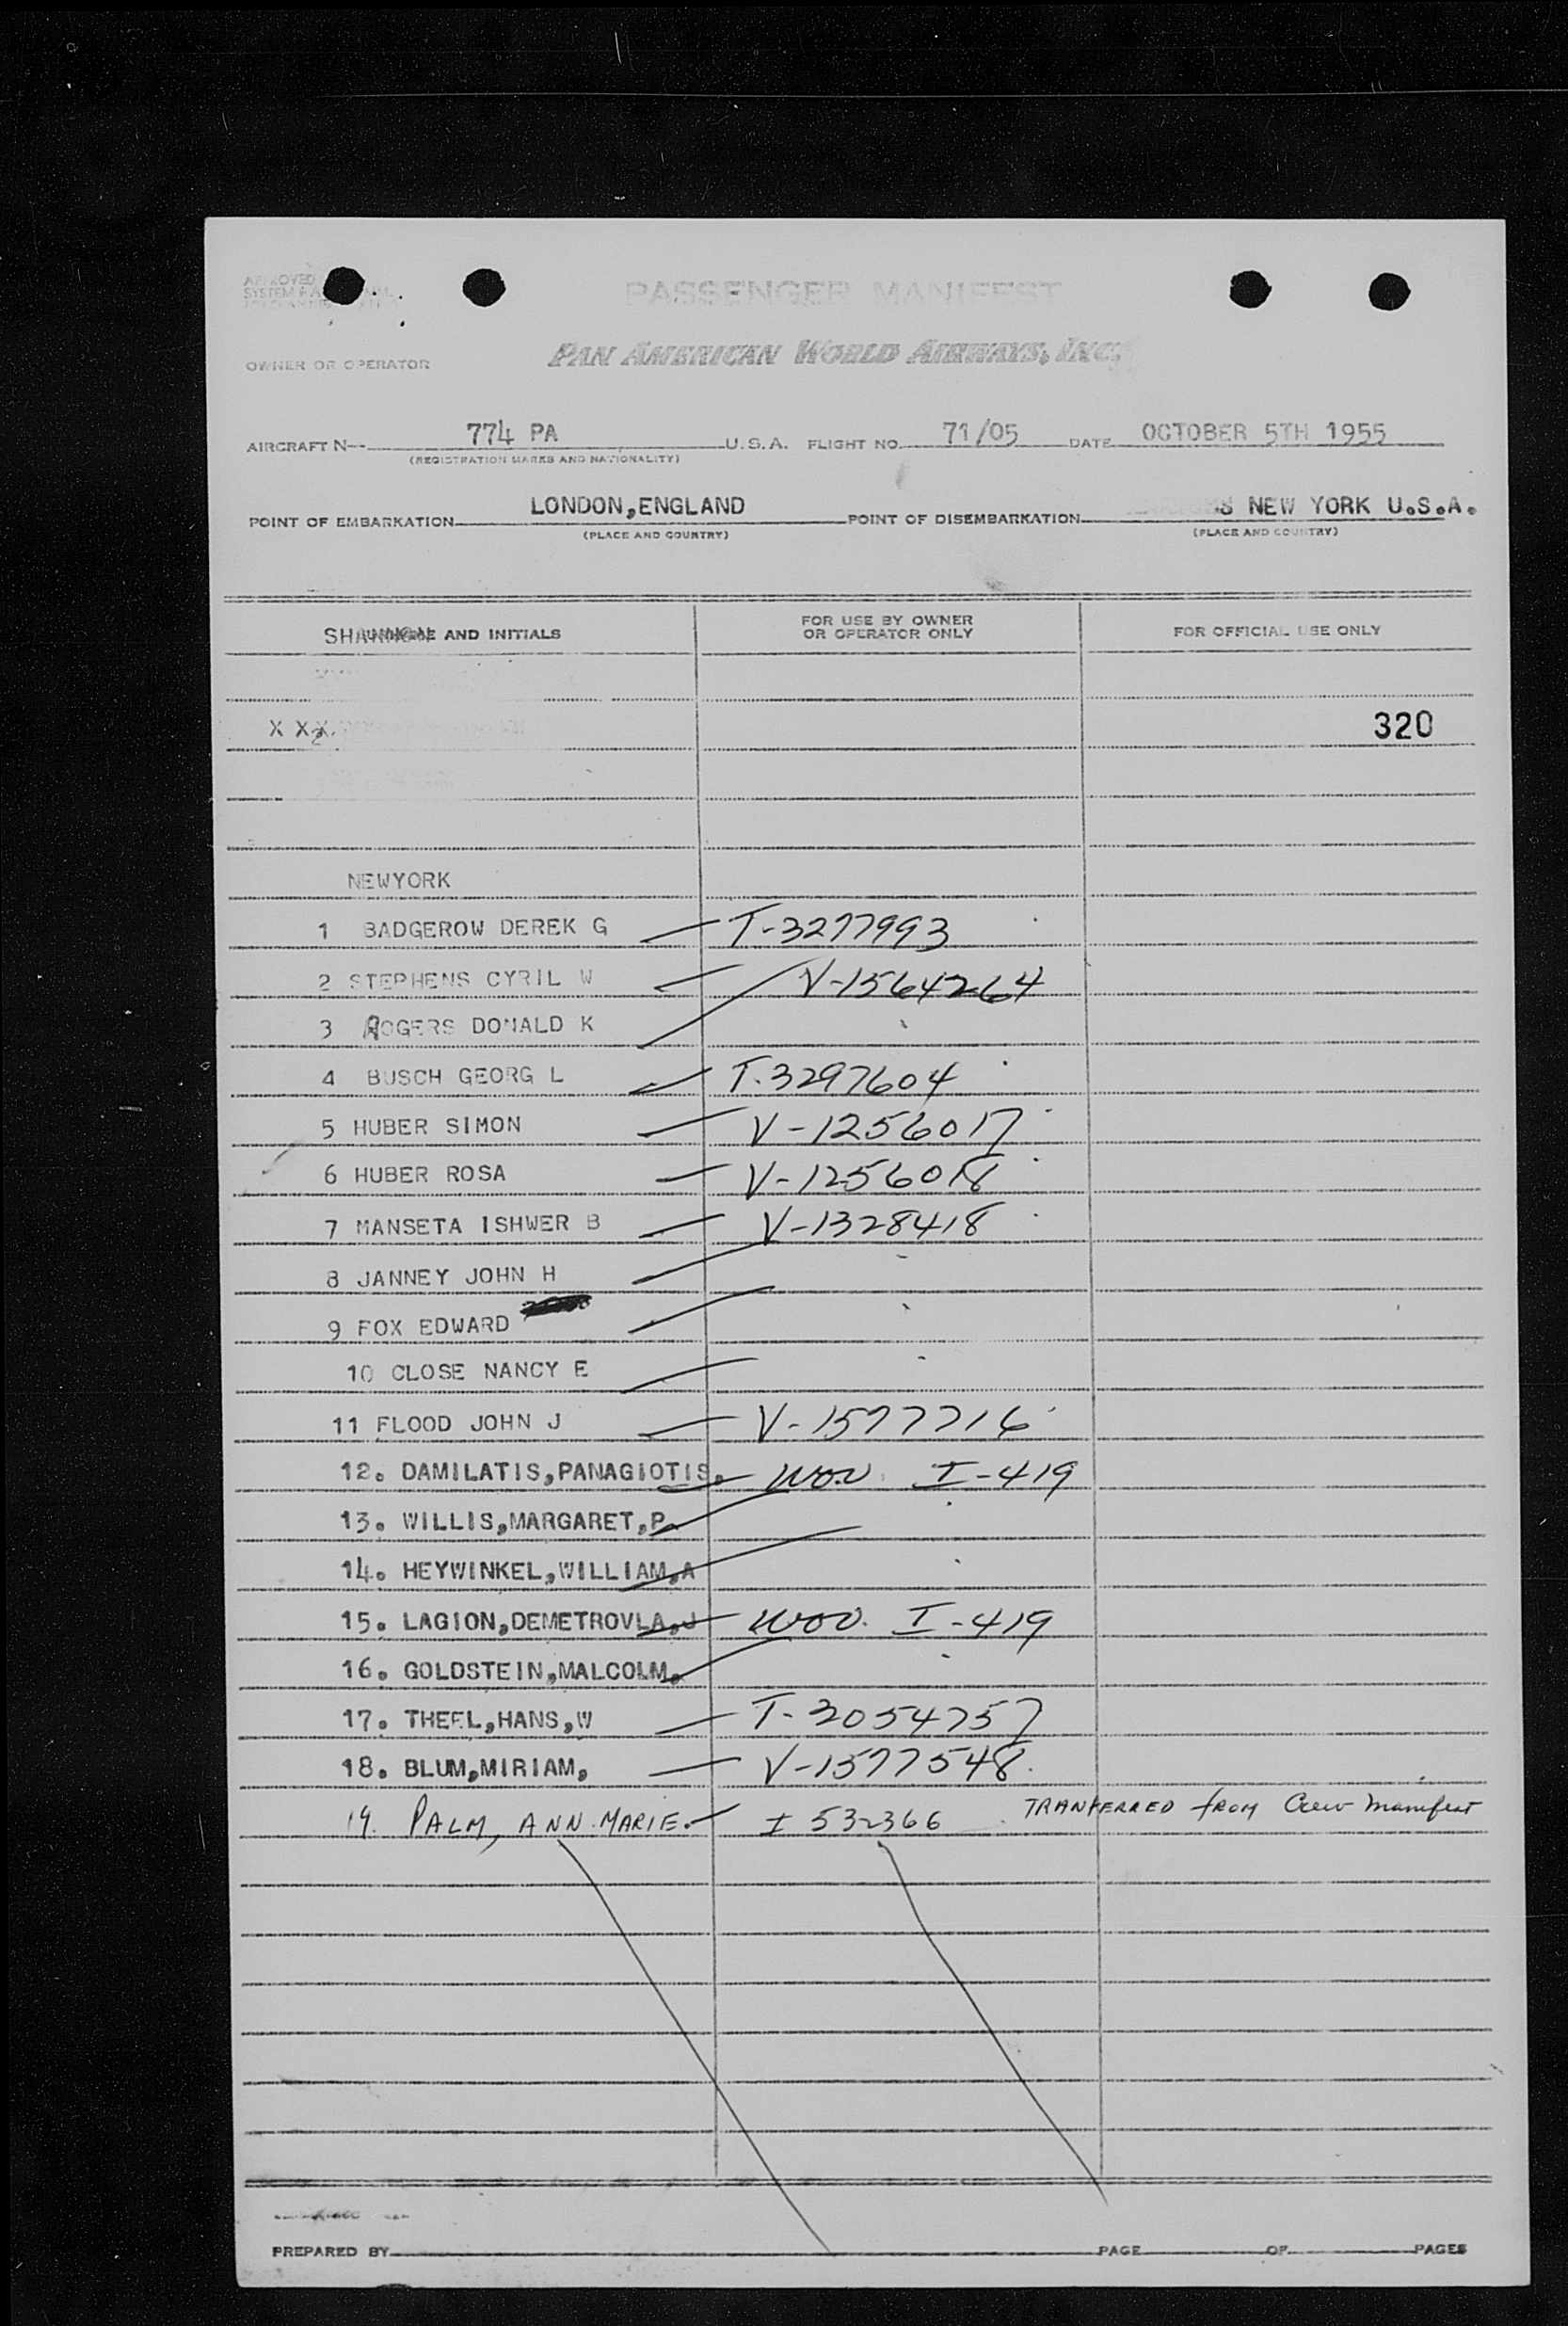 APPROVED
SYSTEM
PASSENGER MANIFEST
OWNER OR OPERATOR PAN AMERICAN WORLD AIRWAYS, INC.
AIRCRAFT N-- 774 PA U.S.A. FLIGHT NO. 71/05 DATE OCTOBER 5TH 1955
(REGISTRATION MARKS AND NATIONALITY)
POINT OF EMBARKATION LONDON,ENGLAND POINT OF DISEMBARKATION NEW YORK U.S.A.
(PLACE AND COUNTRY) (PLACE AND COUNTRY)
AND INITIALS FOR USE BY OWNER OR OPERATOR ONLY FOR OFFICIAL USE ONLY
X X X 320
NEWYORK
1 BADGEROW DEREK G T-3277993
2 STEPHENS CYRIL W V-1564264
3 ROGERS DONALD K
4 BUSCH GEORG L T.3297604
5 HUBER SIMON V-1256017
6 HUBER ROSA V-1256018
7 MANSETA ISHWER B V-1328418
8 JANNEY JOHN H
9 FOX EDWARD
10 CLOSE NANCY E
11 FLOOD JOHN J V-1577716
12. DAMILATIS,PANAGIOTIS. I-419
13. WILLIS,MARGARET,P.
14. HEYWINKEL,WILLIAM,A
15. LAGION,DEMETROVLA,J I-419
16. GOLDSTEIN,MALCOLM,
17. THEEL,HANS,W T-3054757
18. BLUM,MIRIAM, V-1577548
19. PALM, ANN MARIE. I 532366 TRANFERRED from Crew Manifest
PREPARED BY PAGE OF PAGES